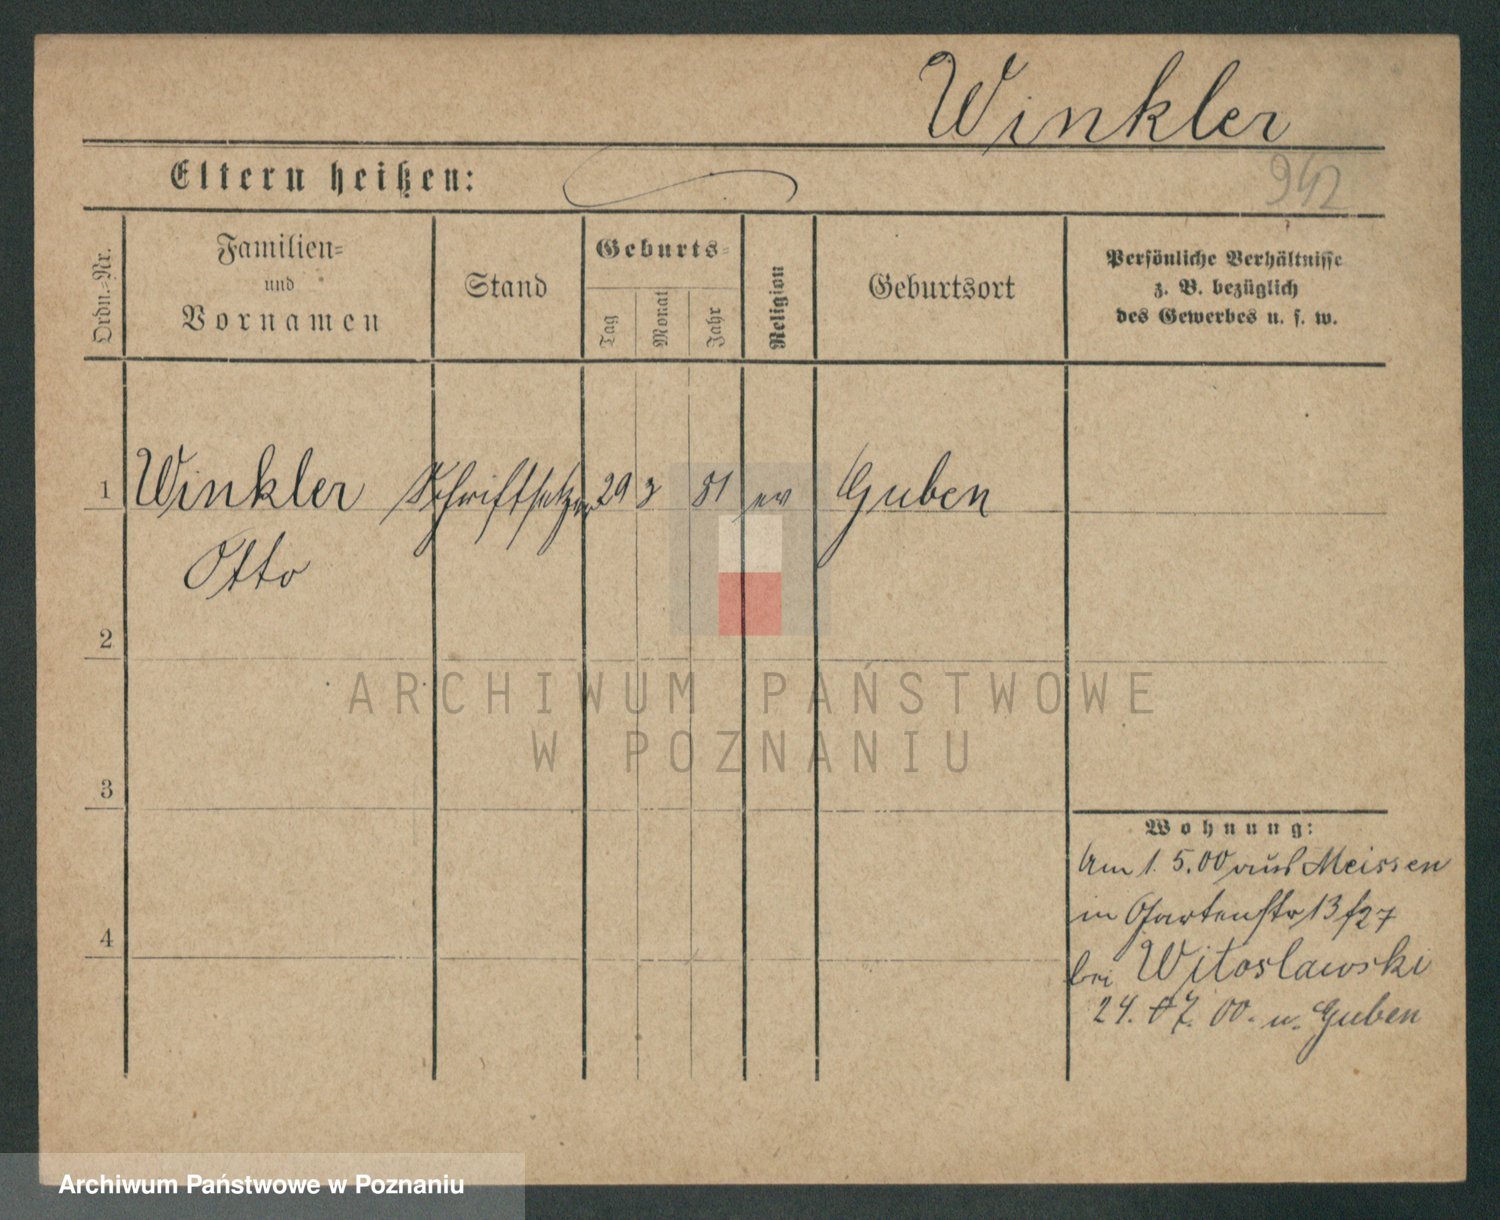 Winkler
942
Eltern heißen:
Ordn.-Nr.
Familien-
und
Vornamen
Stand
Geburts-
Tag
Monat
Jahr
Religion
Geburtsort
Persönliche Verhältnisse
z. B. bezüglich
des Gewerbes u. s. w.
1 Winkler Schriftsetzer 29 3 81 ev Guben
Otto
2
ARCHIWUM PAŃSTWOWE
W POZNANIU
3
Wohnung:
Am 1.5.00 aus Meissen
in Gartenstr 13/27
bei Witoslawski
4
24. 07. 00. n. Guben
Archiwum Państwowe w Poznaniu